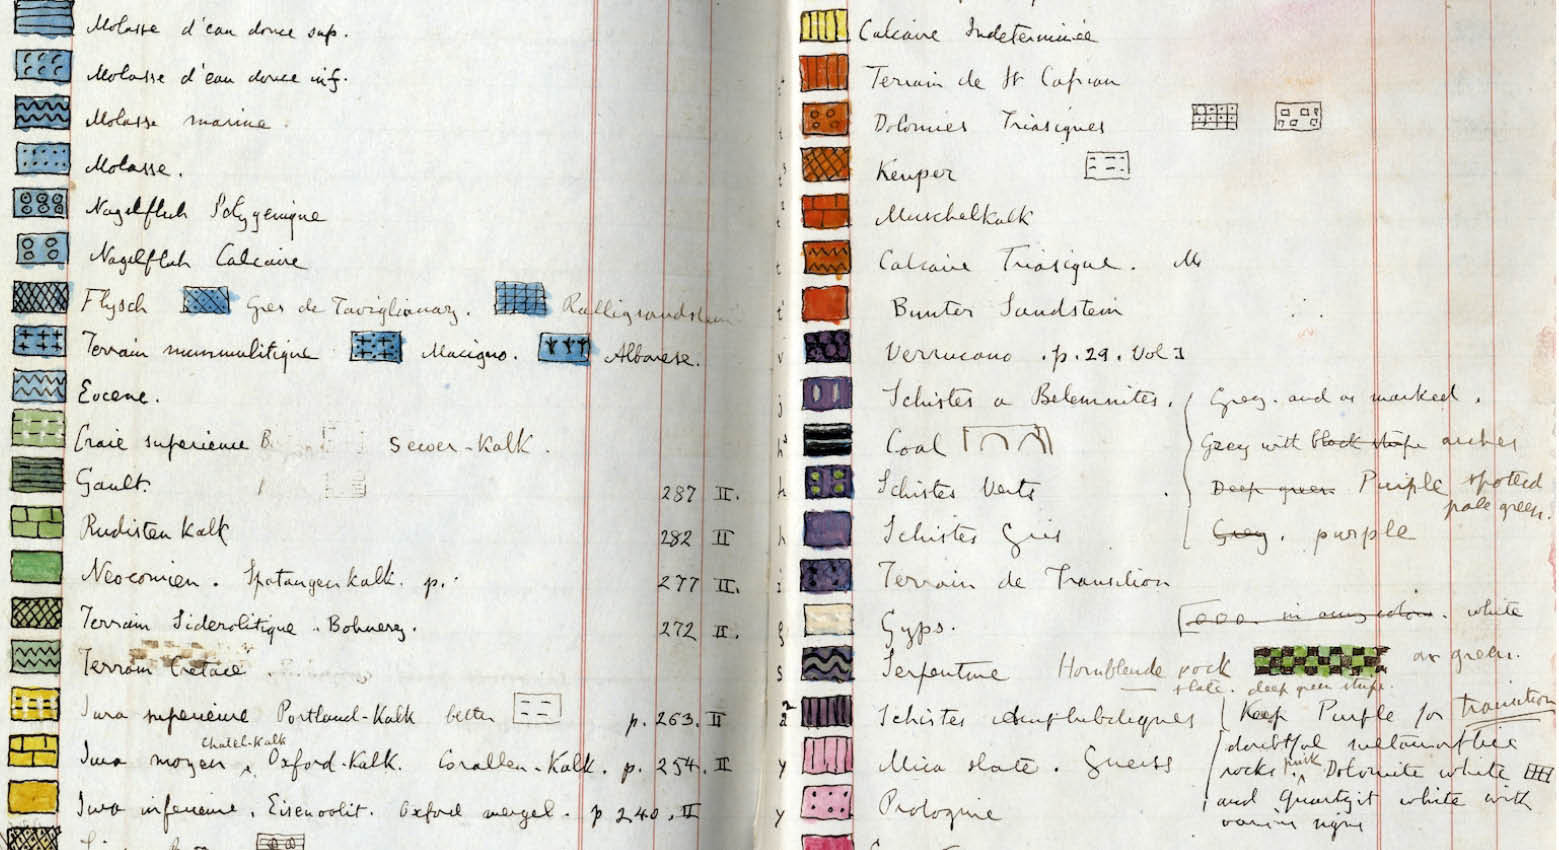 Molasse d'eau douce sup.
Molasse d'eau douce inf.
Molasse marine.
Molasse.
Nagelfluh Polygenique
Nagelfluh Calcaire
Flysch Gres de Taviglianaz. Ralligsandstein
Terrain nummulitique Macigno. Albarese.
Eocene.
Craie superieure B Sewer-Kalk.
Gault. 287 II.
Rudisten Kalk 282 II
Neocomien. Spatangenkalk. p. 277 II.
Terrain Siderolitique. Bohnerz. 272 II.
Terrain Cretace
Jura superieure Portland-Kalk better p. 263. II
Chatel-Kalk
Jura moyen ^ Oxford-Kalk. Corallen-Kalk. p. 254. II
Jura inferieure. Eisenoolit. Oxford mergel. p 240. II
Calcaire Indeterminée
Terrain de St Cassian
t Dolomies Triasiques
Keuper
Muschelkalk
t Calcaire Triasique. M
t Bunter Sandstein
v Verrucano. p. 29. Vol I
j Schistes a Belemnites. Grey. and as marked.
h Coal Grey with black stripe arches
h Schistes Verts Deep green Purple spotted
pale green.
h Schistes Gris Grey. purple
i Terrain de Transition
g Gyps. in any colour. white
s Serpentine Hornblende rock or green.
slate. deep green stripe.
a Schistes amphiboliques Keep Purple for transition
doubtful metamorphic
y Mica slate. Gneiss rocks pink ^ Dolomite white
and Quartzit white with
y Protogine various signs